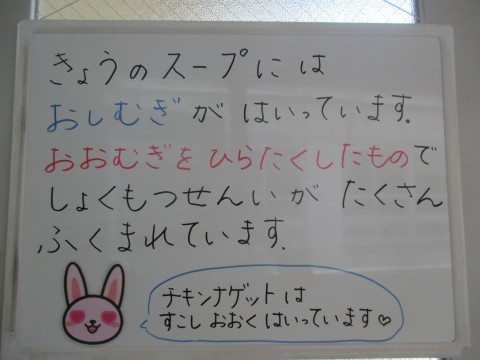 きょうのスープには
おしむぎが はいっています.
おおむぎを ひらたくしたもので
しょくもつせんいが たくさん
ふくまれています.
チキンナゲットは
すこし おおく はいっています♡